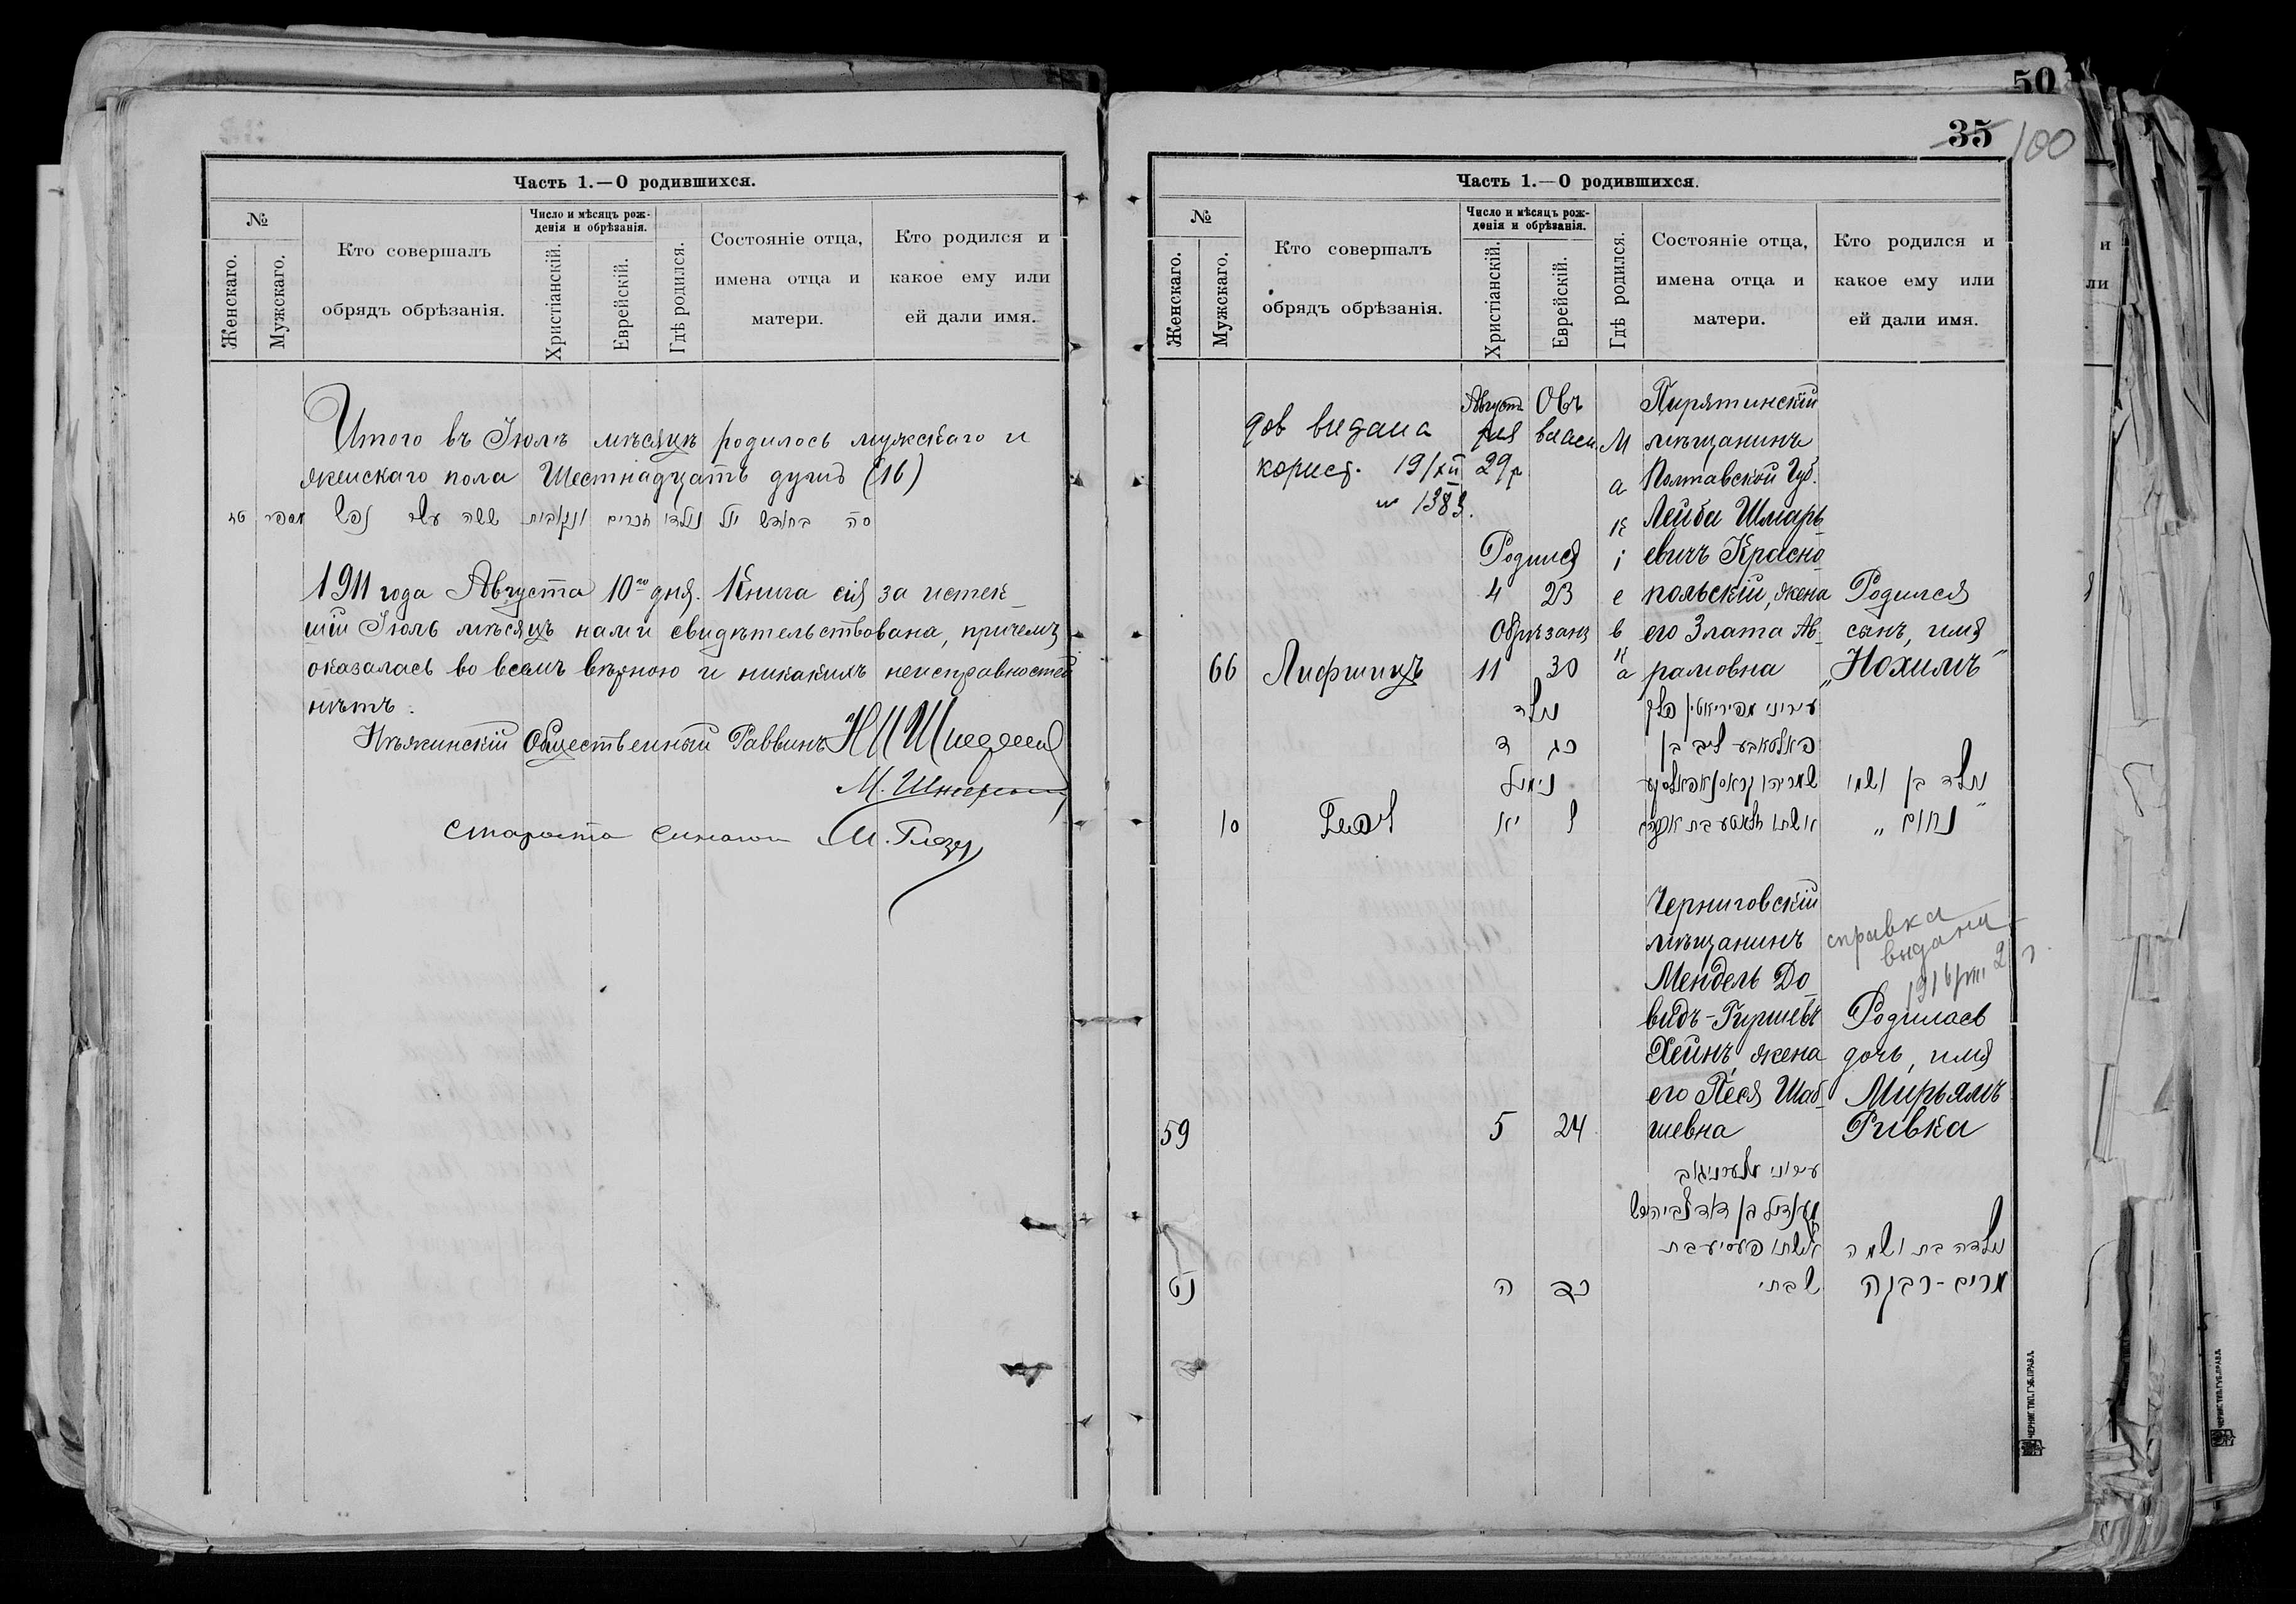 Часть 1.—О родившихся.
№
Женскаго.
Мужскаго.
Кто совершалъ
обрядъ обрѣзанія.
Число и мѣсяцъ рож-
денія и обрѣзанія.
Христіанскій.
Еврейскій.
Гдѣ родился.
Состояніе отца,
имена отца и
матери.
Кто родился и
какое ему или
ей дали имя.
Итого въ Іюлѣ мѣсяцѣ родилось мужскаго и
женскаго пола Шестнадцать душъ (16)
1911 года Августа 10го дня. Книга сія за истек-
шій Іюль мѣсяцъ нами свидѣтельствована, причемъ
оказалась во всемъ вѣрною и никакихъ неисправностей
нѣтъ.
Нѣжинскій Общественный Раввинъ
М.
Староста М. Глозе
50
35
100
Часть 1.—О родившихся.
№
Женскаго.
Мужскаго.
Кто совершалъ
обрядъ обрѣзанія.
Число и мѣсяцъ рож-
денія и обрѣзанія.
Христіанскій.
Еврейскій.
Гдѣ родился.
Состояніе отца,
имена отца и
матери.
Кто родился и
какое ему или
ей дали имя.
дов видана
корисд. 19/XII 29р
№ 1383.
Августа Овъ
Родился
4 23
Обрѣзанъ
66 Лифшицъ 11 30
Пирятинскій
мѣщанинъ
Полтавской Губ.
Лейба Шмарь-
евичъ Красно-
польскій, жена
его Злата Ав-
рамовна
Родился
сынъ, имя
„Нохимъ"
נולד
כג ד
נימול
יא ל
ליפשיץ
עירוני
ליב בן
שמריהו
אשתו זלאטע בת
נולד בן ושמו
„נחום"
Черниговскій
мѣщанинъ
Мендель До-
видъ-Гиршевъ
Хейнъ, жена
его Песя Шаб-
шевна
справка
выдана
Родилась
дочь, имя
Мирьямъ
Ривка
59 5 24
עירוני
מענדיל בן דוד
אשתו פעסיע בת
שבתי
נולדה בת ושמה
מרים-רבקה
נט ה כד
ЧЕРНИГ. ТИП. ГУБ. ПРАВЛ.